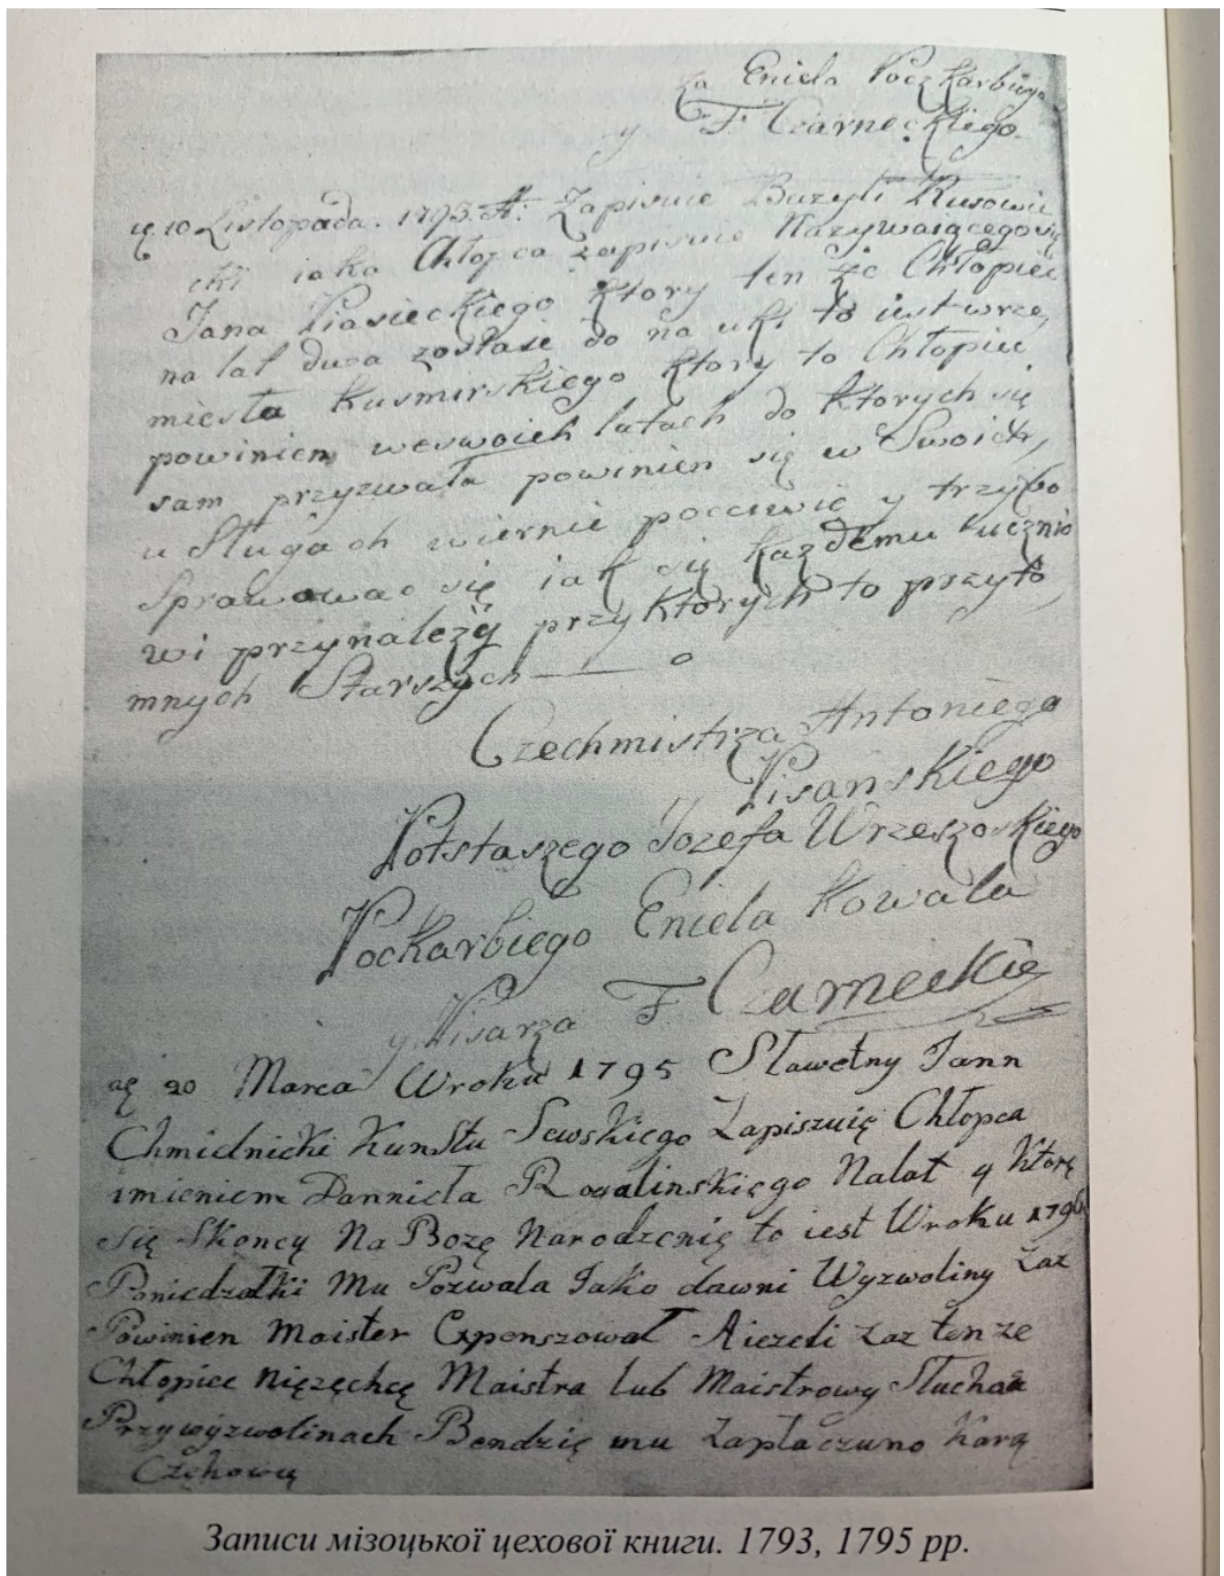 za Eniela Poczkarbiego
y F Czarneckiego
10 Listopada. 1793. A: Zapisuie Bazyli Kusowi
cki iako Chłopca zapisuie Nazywaiącego się
Jana Piasieckiego Ktory ten że Chłopiec
na lat dwa zostaie do na uki to iest wrze,
miesła Kusmirskiego Ktory to Chłopiec
powinien weswoich latach do Ktorych się
sam przyzwała powinien się w Swoich,
u Sługach wiernie poczciwie y trzyźo
Sprawowac się iak się każdemu ucznio
wi przynależy przyktorych to przyto,
mnych Starszych
Czechmistrza Antoniego
Pisanskiego
Potstaszego Jozefa Wrzeszoskiego
Pockarbiego Eniela Kowala
y Pisarza F Czarneckie
20 Marca Wroku 1795 Sławetny Jann
Chmielnicki Kunsztu Sewskiego Zapiszuię Chłopca
imieniem Dannieła Rogalinskięgo Nalat 4 Ktorę
Się Skoncy Na Bozę Narodzenię to iest Wroku 1796
Poniedzałki Mu Pozwala Jako dawni Wyzwoliny Zaz
Powinien Maister Expenszowat Aiezeli zaz tenze
Chłopiec Nięzęchcę Maistra lub Maistrowy Słuchać
Przywyzwolinach Bendzię mu Zapłaczuno Karą
Czchową
Записи мізоцької цехової книги. 1793, 1795 рр.